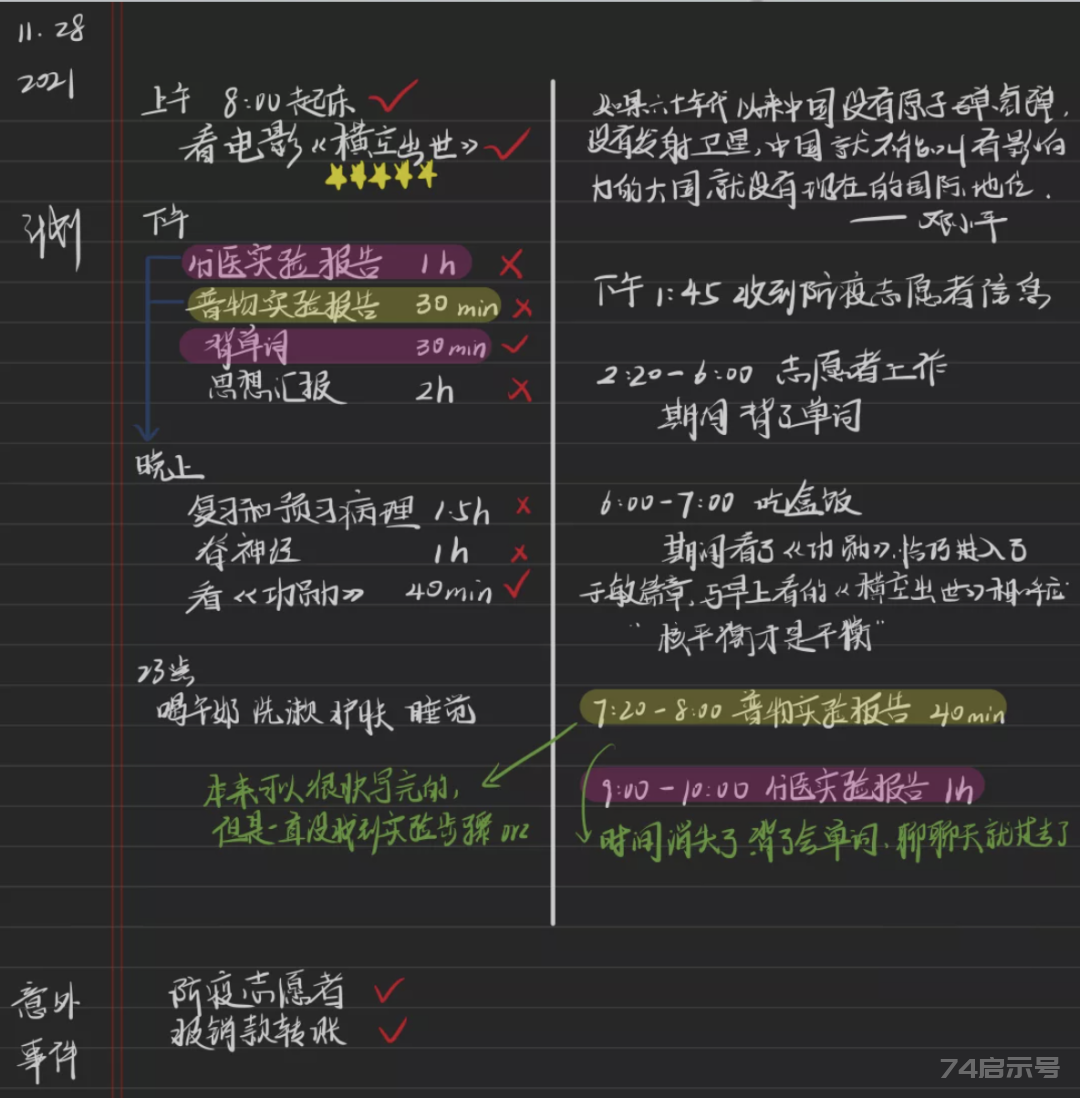 11.28
2021
上午 8:00 起床
看电影《横空出世》
计划
下午
实验报告 1h
普物实验报告 30 min
背单词 30min
思想汇报 2h
晚上
复习和预习病理 1.5h
脊神经 1h
看《功勋》 40min
23点
喝牛奶 洗漱 护肤 睡觉
本来可以很快写完的,
但是一直没找到实验步骤 orz
如果六十年代以来中国没有原子弹、氢弹,
没有发射卫星,中国就不能叫有影响
力的大国,就没有现在的国际地位.
—— 邓小平
下午 1:45 收到防疫志愿者信息
2:20-6:00 志愿者工作
期间 背了单词
6:00-7:00 吃盒饭
期间看了《功勋》,恰巧进入了
于敏篇章,与早上看的《横空出世》相呼应
"核平衡才是平衡"
7:20-8:00 普物实验报告 40min
9:00-10:00 实验报告 1h
时间消失了 背了会单词、聊聊天就过去了
意外
事件
防疫志愿者
报销款转账
74启示号